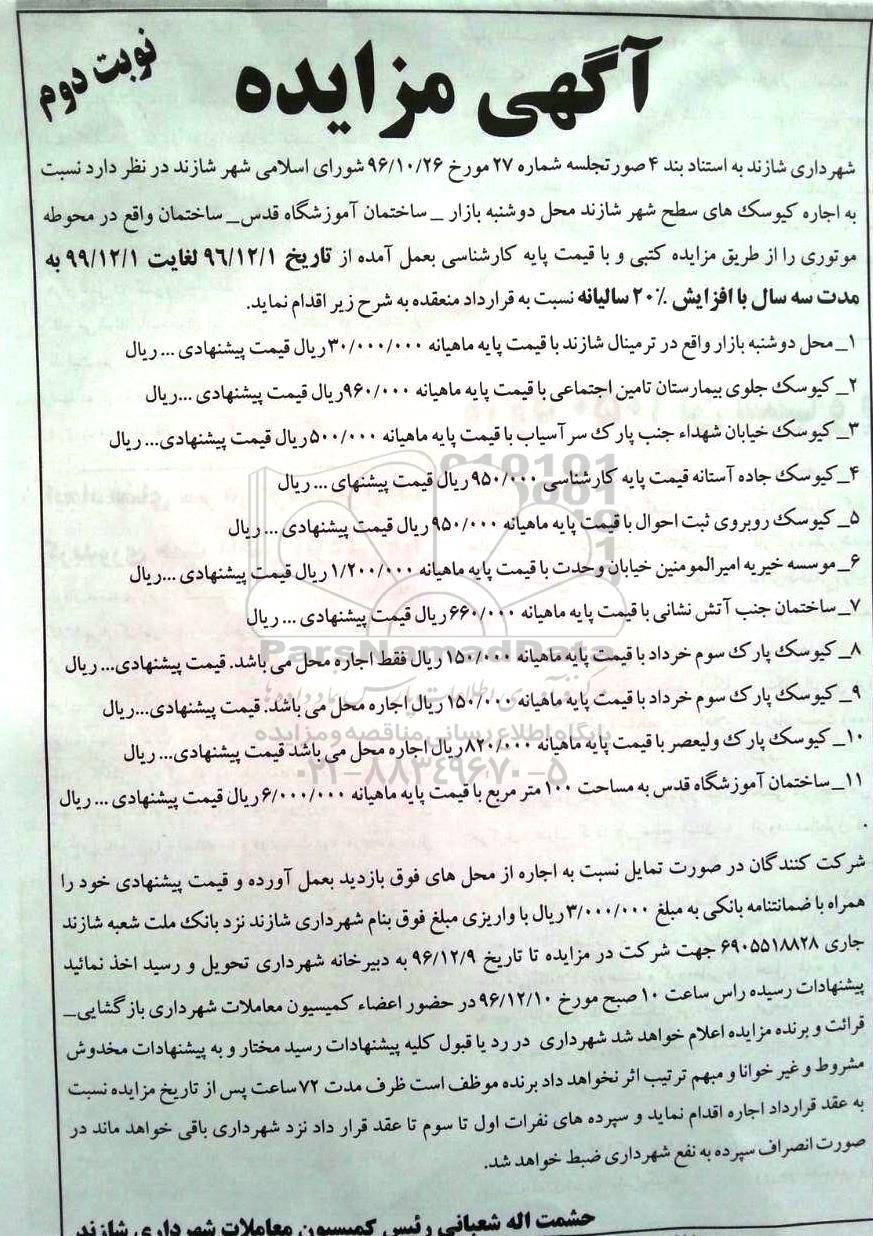 نوبت دوم
آگهی مزایده
شهرداری شازند به استناد بند ۴ صورتجلسه شماره ۲۷ مورخ ۹۶/۱۰/۲۶ شورای اسلامی شهر شازند در نظر دارد نسبت
به اجاره کیوسک های سطح شهر شازند محل دوشنبه بازار _ ساختمان آموزشگاه قدس_ ساختمان واقع در محوطه
موتوری را از طریق مزایده کتبی و با قیمت پایه کارشناسی بعمل آمده از تاریخ ۹۶/۱۲/۱ لغایت ۹۹/۱۲/۱ به
مدت سه سال با افزایش ۲۰٪ سالیانه نسبت به قرارداد منعقده به شرح زیر اقدام نماید.
۱_ محل دوشنبه بازار واقع در ترمینال شازند با قیمت پایه ماهیانه ۳۰/۰۰۰/۰۰۰ ریال قیمت پیشنهادی ... ریال
۲_ کیوسک جلوی بیمارستان تامین اجتماعی با قیمت پایه ماهیانه ۹۶۰/۰۰۰ریال قیمت پیشنهادی ...ریال
۳_ کیوسک خیابان شهداء جنب پارک سرآسیاب با قیمت پایه ماهیانه ۵۰۰/۰۰۰ ریال قیمت پیشنهادی... ریال
۴_کیوسک جاده آستانه قیمت پایه کارشناسی ۹۵۰/۰۰۰ ریال قیمت پیشنهای ... ریال
۵_ کیوسک روبروی ثبت احوال با قیمت پایه ماهیانه ۹۵۰/۰۰۰ ریال قیمت پیشنهادی ... ریال
۶_ موسسه خیریه امیرالمومنین خیابان وحدت با قیمت پایه ماهیانه ۱/۲۰۰/۰۰۰ ریال قیمت پیشنهادی ...ریال
۷_ ساختمان جنب آتش نشانی با قیمت پایه ماهیانه ۶۶۰/۰۰۰ ریال قیمت پیشنهادی ... ریال
۸_ کیوسک پارک سوم خرداد با قیمت پایه ماهیانه ۱۵۰/۰۰۰ ریال فقط اجاره محل می باشد. قیمت پیشنهادی... ریال
۹_ کیوسک پارک سوم خرداد با قیمت پایه ماهیانه ۱۵۰/۰۰۰ ریال اجاره محل می باشد. قیمت پیشنهادی...ریال
۱۰_ کیوسک پارک ولیعصر با قیمت پایه ماهیانه ۸۲۰/۰۰۰ ریال اجاره محل می باشد قیمت پیشنهادی... ریال
۱۱_ساختمان آموزشگاه قدس به مساحت ۱۰۰ متر مربع با قیمت پایه ماهیانه ۶/۰۰۰/۰۰۰ ریال قیمت پیشنهادی ... ریال
.
شرکت کنندگان در صورت تمایل نسبت به اجاره از محل های فوق بازدید بعمل آورده و قیمت پیشنهادی خود را
همراه با ضمانتنامه بانکی به مبلغ ۳/۰۰۰/۰۰۰ ریال با واریزی مبلغ فوق بنام شهرداری شازند نزد بانک ملت شعبه شازند
جاری ۶۹۰۵۵۱۸۸۲۸ جهت شرکت در مزایده تا تاریخ ۹۶/۱۲/۹ به دبیرخانه شهرداری تحویل و رسید اخذ نمائید
پیشنهادات رسیده راس ساعت ۱۰ صبح مورخ ۹۶/۱۲/۱۰ در حضور اعضاء کمیسیون معاملات شهرداری بازگشایی_
قرائت و برنده مزایده اعلام خواهد شد شهرداری در رد یا قبول کلیه پیشنهادات رسید مختار و به پیشنهادات مخدوش
مشروط و غیر خوانا و مبهم ترتیب اثر نخواهد داد برنده موظف است ظرف مدت ۷۲ ساعت پس از تاریخ مزایده نسبت
به عقد قرارداد اجاره اقدام نماید و سپرده های نفرات اول تا سوم تا عقد قرار داد نزد شهرداری باقی خواهد ماند در
صورت انصراف سپرده به نفع شهرداری ضبط خواهد شد.
حشمت اله شعبانی رئیس کمیسیون معاملات شهرداری شازند
ParsNamadData
پایگاه اطلاع رسانی مناقصه و مزایده
۰۲۱-۸۸۳۴۹۶۷۰-۵